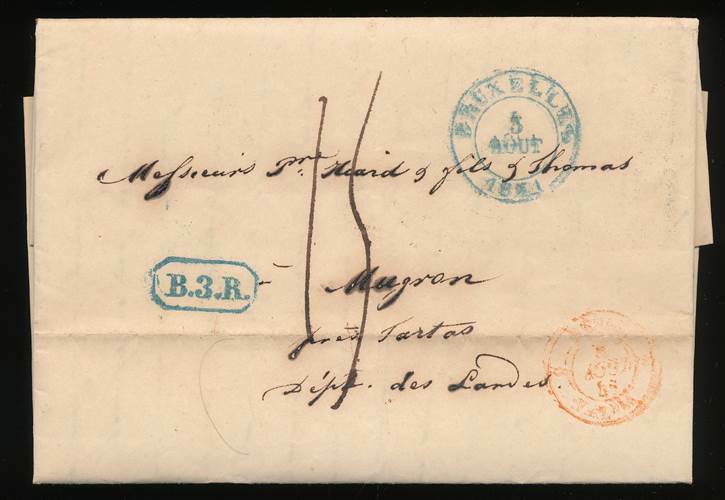 BRUXELLES
5
AOUT
1841
Messieurs Pre. & fils & Thomas
15
B.3.R.
Mugron
près Tartas
Dépt. des Landes.